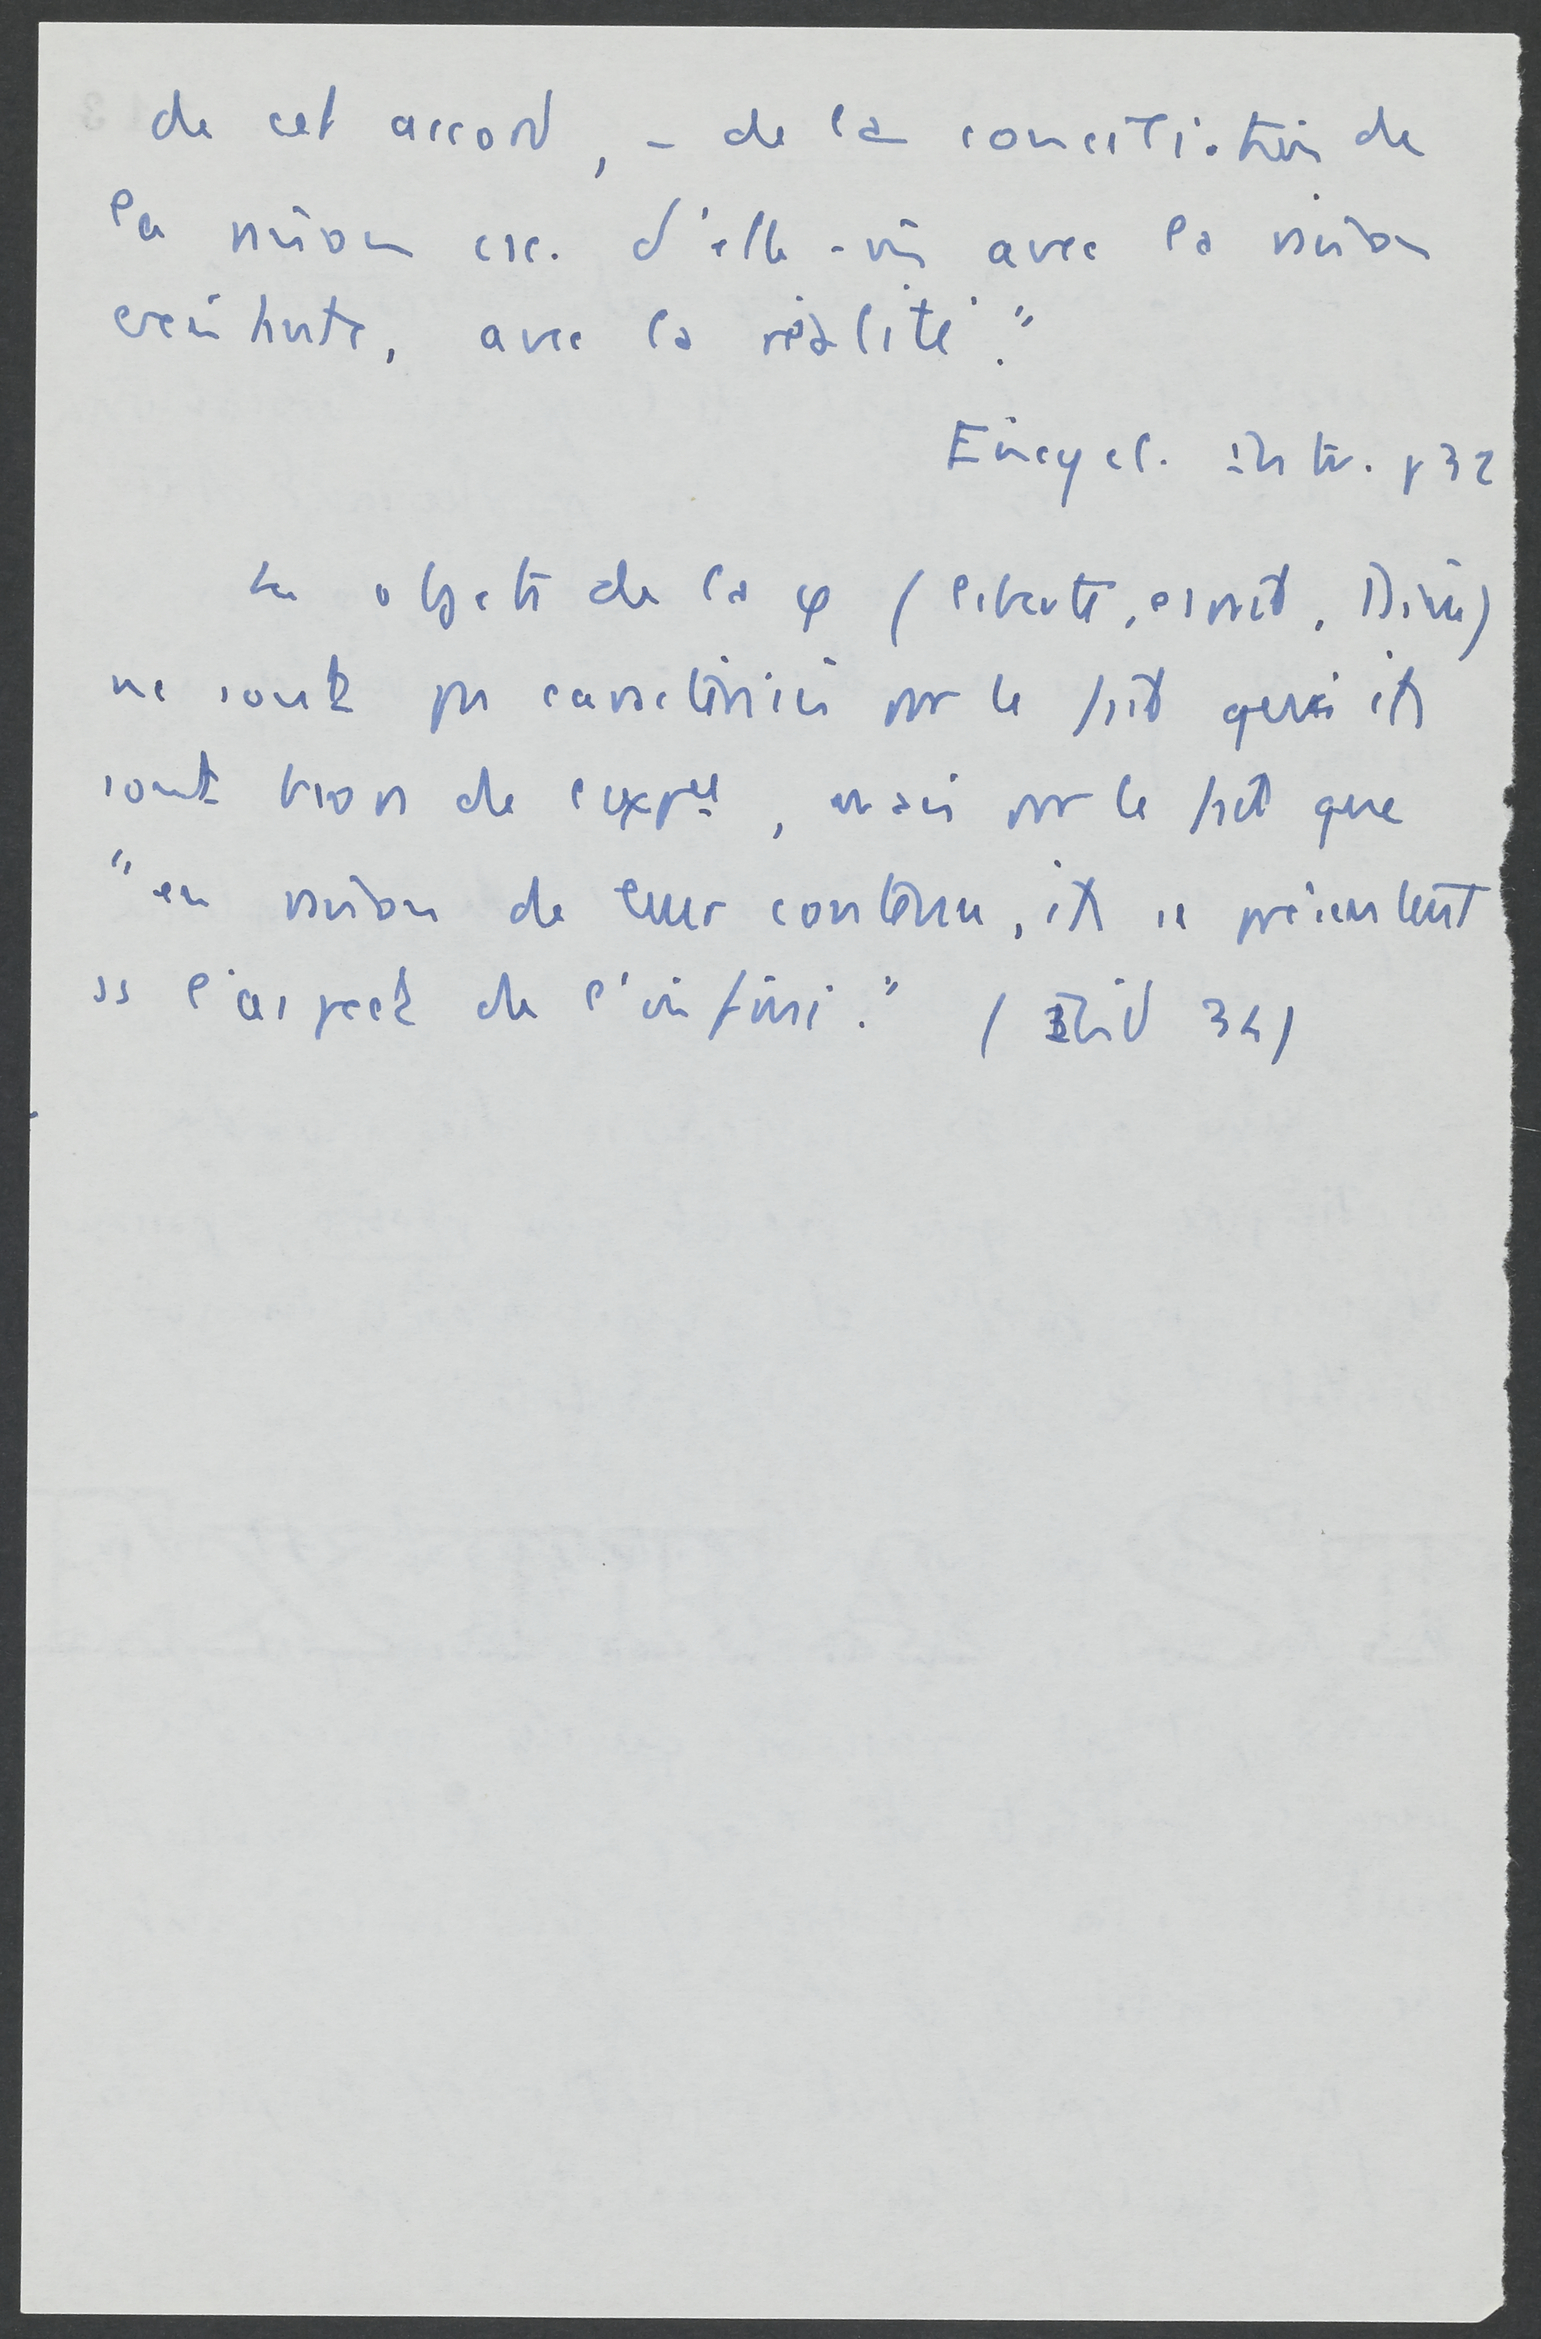 de cet accord, – de la conciliation de
la raison csc. d'elle-m̂ avec la raison
existante, avec la réalité."
Encycl. Intr. p 32
Les objets de la φ (liberté, esprit, Dieu)
ne sont pas caractérisés par le fait qu'ils
sont hors de l'expce, mais par le fait que
"en raison de leur contenu, ils se présentent
ss l'aspect de l'infini." (Ibid 34)